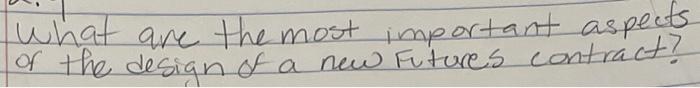 What are the most important aspects
of the design of a new Futures contract?